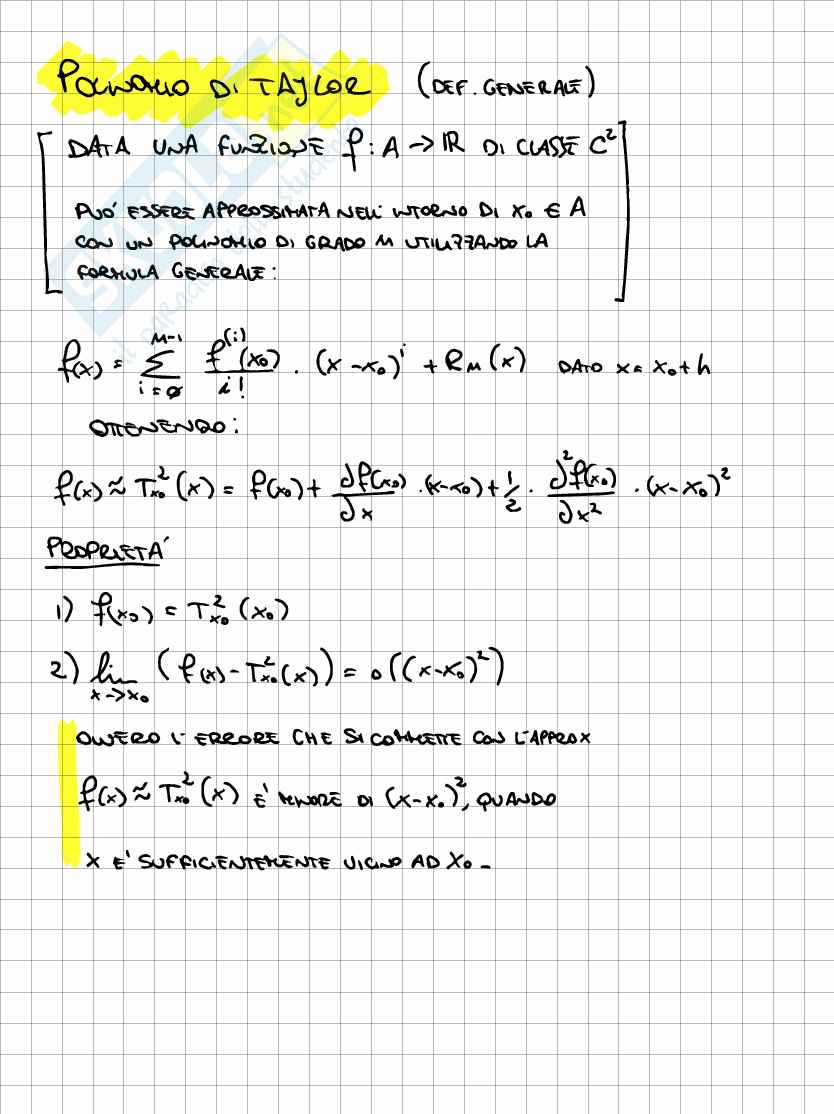 POLINOMIO DI TAYLOR (DEF. GENERALE)
DATA UNA FUNZIONE f: A → ℝ DI CLASSE C²
PUÒ ESSERE APPROSSIMATA NELL' INTORNO DI x₀ ∈ A
CON UN POLINOMIO DI GRADO M UTILIZZANDO LA
FORMULA GENERALE:
f(x) = Σ_{i=0}^{M-1} f^{(i)}(x₀)/i! · (x-x₀)^i + R_M(x) DATO x = x₀+h
OTTENENDO:
f(x) ≈ T²ₓ₀(x) = f(x₀) + ∂f(x₀)/∂x · (x-x₀) + 1/2 · ∂²f(x₀)/∂x² · (x-x₀)²
PROPRIETÀ
1) f(x₀) = T²ₓ₀(x₀)
2) lim_{x→x₀} (f(x) - T²ₓ₀(x)) = o((x-x₀)²)
OVVERO L' ERRORE CHE SI COMMETTE CON L'APPROX
f(x) ≈ T²ₓ₀(x) E' MINORE DI (x-x₀)², QUANDO
X E' SUFFICIENTEMENTE VICINO AD X₀ -